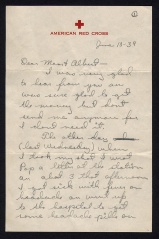 1
AMERICAN RED CROSS
June 13-39
Dear Mom & Albert-
I was very glad
to hear from you an
was sure glad to get
the money but dont
send me anymore for
I dont need it.
The other day
(last Wednesday) when
I took my shot I went
Pop a little at the station
an about 3 that afternoon
I got sick with fever an
headache an went up
to the hospital to get
some headache pills an